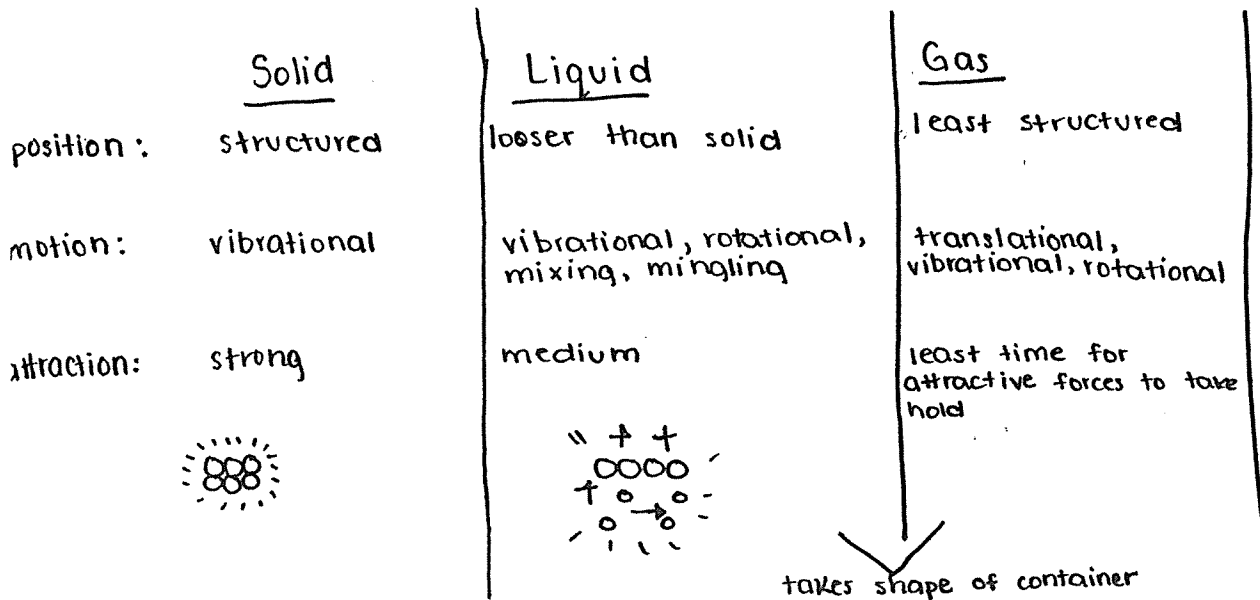 Solid
Liquid
Gas
position: structured
looser than solid
least structured
motion: vibrational
vibrational, rotational,
mixing, mingling
translational,
vibrational, rotational
attraction: strong
medium
least time for
attractive forces to take
hold
takes shape of container